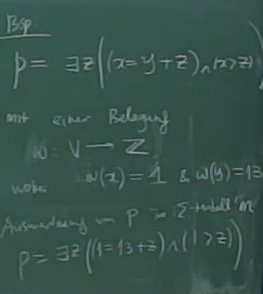 Bsp.
p = ∃z((x=y+z)∧(x>z))
mit einer Belegung
w: V → ℤ
wobei w(x) = 1 & w(y)=13
Auswertung von p in Σ-Modell M
p = ∃z((1=13+z)∧(1>z))